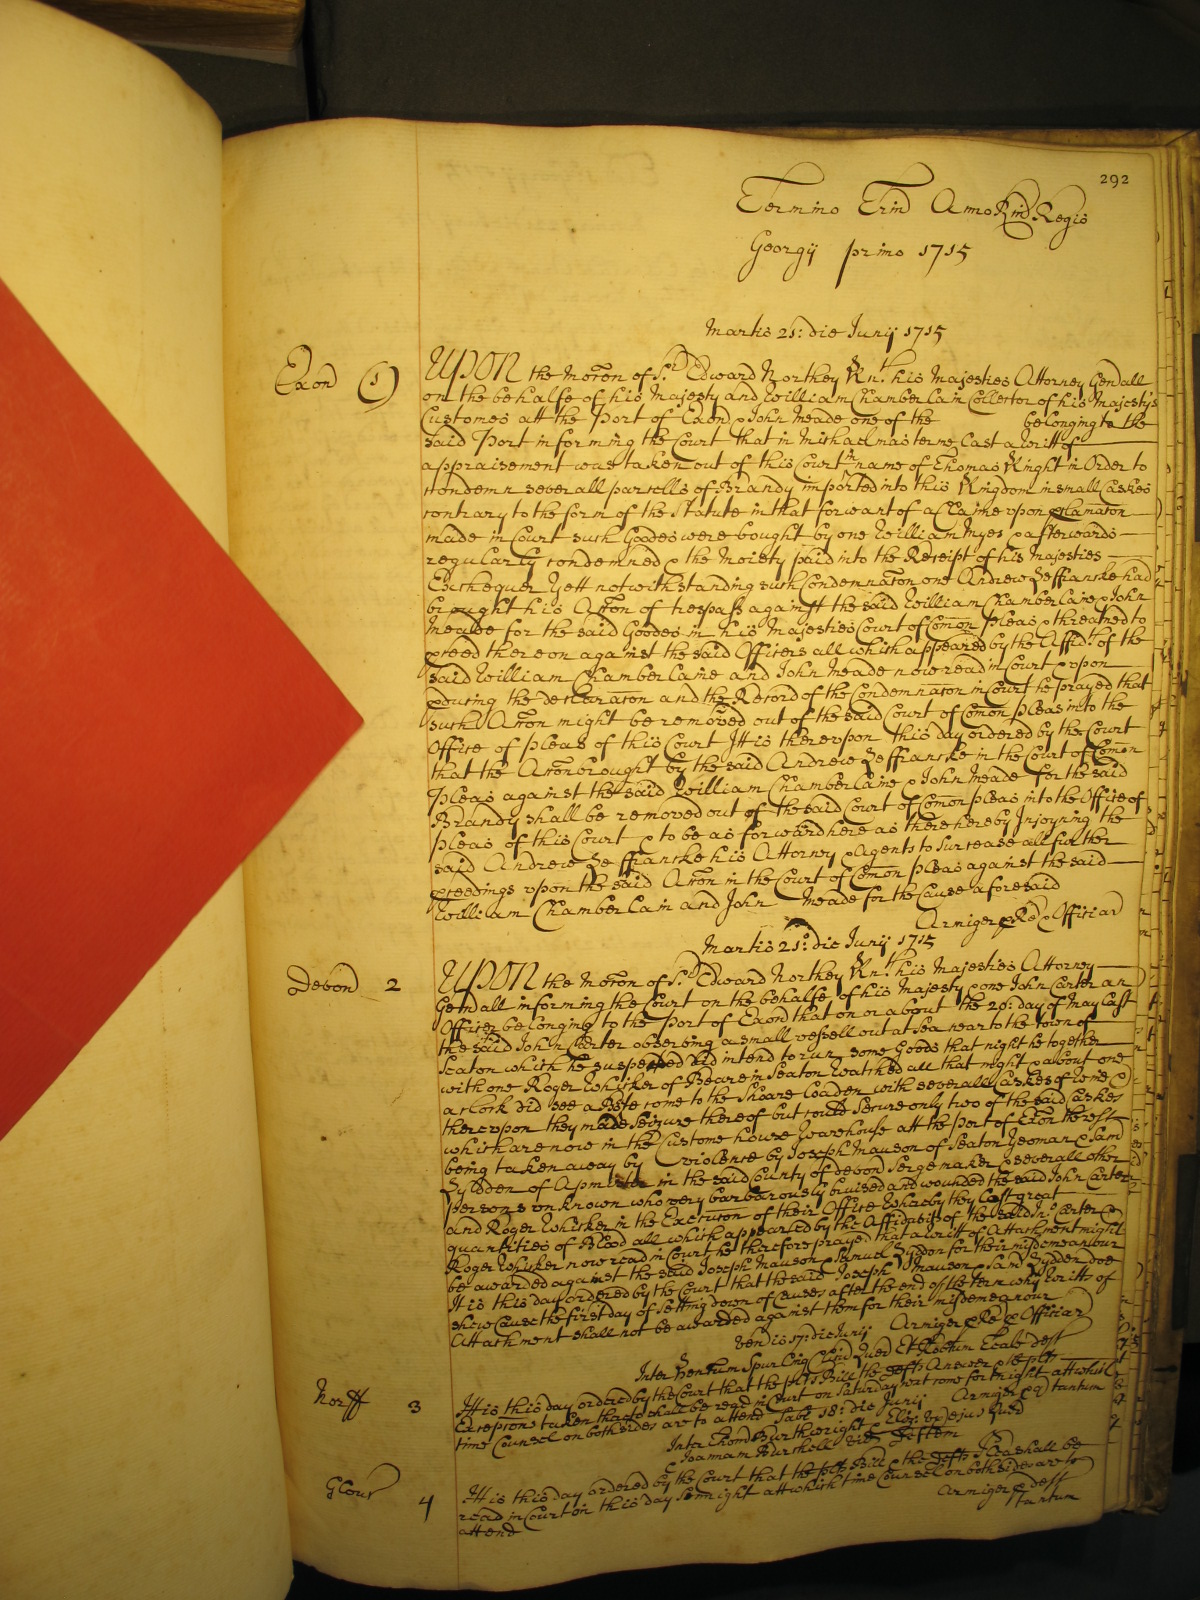 292
Termino Trin Anno Rni Regis
Georgij primo 1715
Martis 21: die Junij 1715
Exon 1
UPON the mocon of Sr. Edward Northey Knt. his Majesties Attorney Genall
on the behalfe of his Majesty and William Chamberlain Collector of his Majestys
Customes att the Port of Exon & John Meade one of the belonging to the
said Port informing the Court that in Michaelmas terme last a Writt of
appraisement was taken out of this Court in name of Thomas Knight in Order to
condemn severall parcells of Brandy imported into this Kingdom in small Caskes
contrary to the form of the Statute in that for want of a Claime upon proclamacon
made in Court such Goods were bought by one William Myes & afterwards
regularly condemned & the Moiety paid into the Receipt of his Majesties
Exchequer Yett notwithstanding such Condemnacon one Andrew Zeffranske had
brought his Accon of trespass against the said William Chamberlaine & John
Meade for the said Goodes in his Majesties Court of Comon Pleas & threatned to
pceed thereon against the said Officers all which appeared by the Affidts. of the
said William Chamberlaine and John Meade now read in Court & upon
pducing the declaracon and the Record of the Condemnacon in Court he prayed that
such Accon might be removed out of the said Court of Comon pleas into the
Office of pleas of this Court It is thereupon this day ordered by the Court
that the Accon brought by the said Andrew Zeffranske in the Court of Comon
Pleas against the said William Chamberlaine & John Meade for the said
Brandy shall be removed out of the said Court of Comon pleas into the Office of
pleas of this Court & to be as forward here as there hereby Injoyning the
said Andrew Zeffranske his Attorney & Agents to surcease all further
pceedings upon the said Accon in the Court of Comon Pleas against the said
William Chamberlain and John Meade for the Cause aforesaid
Armiger p Re & Officiar
Martis 21o: die Junij 1715
Devon 2
UPON the mocon of Sr. Edward Northey Knt. his Majesties Attorney
Genall informing the Court on the behalfe of his Majesty & one John Carter an
Officer belonging to the Port of Exon that on or about the 20: day of May last
the said John Carter observing a small vessell out at sea near to the town of
Seaton which he suspected did intend to run some Goods that night he together
with one Roger Whisker of Beare in Seaton watched all that night & about one
a clock did see a Bote come to the Shoare loaden with severall Caskes of wine &
thereupon they made seizure thereof but could secure only two of the said Caskes
which are now in the Custome house Warehouse att the port of Exon the rest
being taken away by violence by Joseph Mauson of Seaton Yeoman & Sam
Zydden of in the said County of devon Sergemaker & severall other
persons unknown who very barbarously bruised and wounded the said John Carter
and Roger Whisker in the Execucon of their Office whereby they lost great
quantities of Blood all which appeared by the Affidavits of the said Jno. Carter &
Roger Whisker now read in Court he therefore prayed that a Writt of Attachment might
be awarded against the said Joseph Mauson & Samuel Zyddon for their misdemeanour
It is this day ordered by the Court that the said Joseph Mauson & Sam Zydden doe
shew cause the first day of setting down of Causes after the end of the term why Writts of
Attachment shall not be awarded against them for their misdemeanour
Armiger p Re & Officiar
Ven is 17: die Junij
Inter Spurling Quer Et Deft
Norff 3
It is this day ordered by the Court that the plts Bill the defts Answer & the plts
Excepcons taken thereto shall be read in Court on Saturday next come fortnight att which
time Counsel on both sides are to attend Armiger p Q tantum
Sabti 18: die Junij
Inter Thom Burthwright & Eliz: ux ejus Quer
& Joannam Burshell vid Deftem
Glouc 4
It is this day ordered by the Court that the plts Bill & the defts Plea shall be
read in Court on this day Senight att which time Counsel on both sides are to
attend
Armiger p deft
tantum